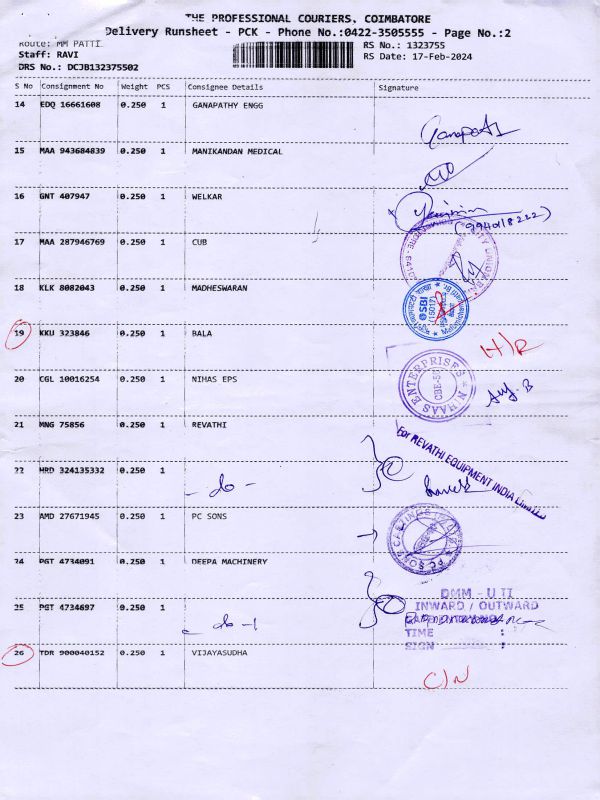 THE PROFESSIONAL COURIERS, COIMBATORE
Delivery Runsheet - PCK - Phone No.:0422-3505555 - Page No.:2
Route: MM PATTI RS No.: 1323755
Staff: RAVI RS Date: 17-Feb-2024
DRS No.: DCJB132375502
S No Consignment No Weight PCS Consignee Details Signature
14 EDQ 16661608 0.250 1 GANAPATHY ENGG
15 MAA 943684839 0.250 1 MANIKANDAN MEDICAL
16 GNT 407947 0.250 1 WELKAR
(994018222)
17 MAA 287946769 0.250 1 CUB
18 KLK 8082043 0.250 1 MADHESWARAN
SBI
19 KKU 323846 0.250 1 BALA
H/R
20 CGL 10016254 0.250 1 NIHAS EPS
NIHAAS ENTERPRISES
21 MNG 75856 0.250 1 REVATHI
For REVATHI EQUIPMENT INDIA Limited
22 MRD 324135332 0.250 1
- do -
23 AMD 27671945 0.250 1 PC SONS
24 PGT 4734091 0.250 1 DEEPA MACHINERY
DMM - U II
25 PGT 4734697 0.250 1 INWARD / OUTWARD
- do -
TIME :
SIGN :
26 TDR 900040152 0.250 1 VIJAYASUDHA
C/N